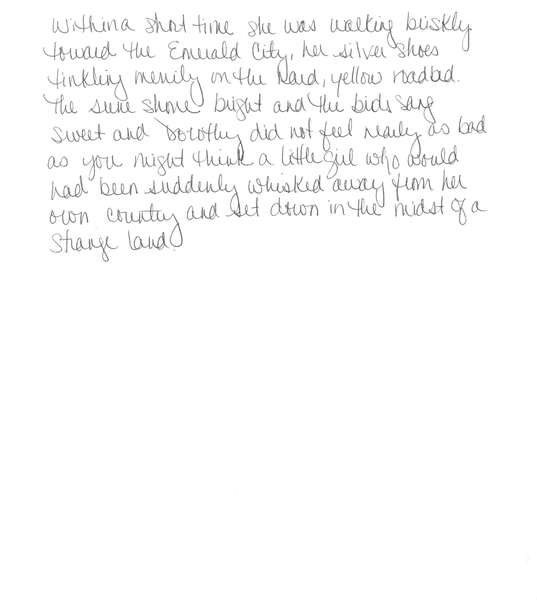 Within a short time she was walking briskly
toward the Emerald City, her silver shoes
tinkling merrily on the hard, yellow roadbed.
The sun shone bright and the birds sang
sweet and Dorothy did not feel nearly as bad
as you might think a little girl who would
had been suddenly whisked away from her
own country and set down in the midst of a
strange land.